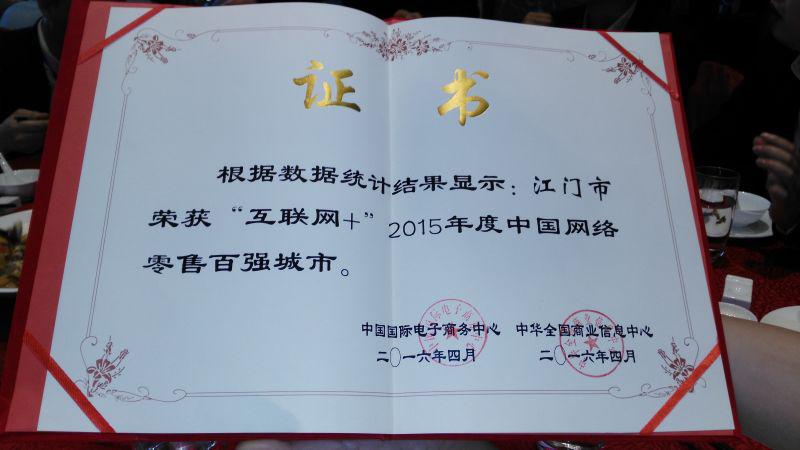 证书
根据数据统计结果显示：江门市
荣获“互联网+”2015年度中国网络
零售百强城市。
中国国际电子商务中心 中华全国商业信息中心
二〇一六年四月 二〇一六年四月